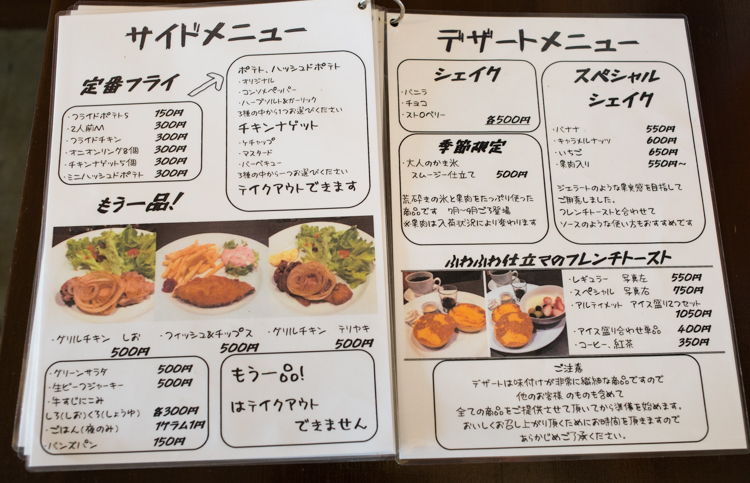 サイドメニュー
定番フライ
・フライドポテトS 150円
・2人前M 300円
・フライドチキン 300円
・オニオンリング8個 300円
・チキンナゲット5個 300円
・ミニハッシュドポテト 300円
ポテト、ハッシュドポテト
・オリジナル
・コンソメペッパー
・ハーブソルト&ガーリック
3種の中から1つお選びください
チキンナゲット
・ケチャップ
・マスタード
・バーベキュー
3種の中から一つお選びください
テイクアウトできます
もう一品!
・グリルチキン しお 500円
・フィッシュ&チップス 500円
・グリルチキン テリヤキ 500円
・グリーンサラダ 500円
・生ビーフジャーキー 500円
・牛すじにこみ
しろ(しお)くろ(しょうゆ) 各300円
・ごはん(夜のみ) 1グラム1円
・バンズパン 150円
もう一品!
はテイクアウト
できません
デザートメニュー
シェイク
・バニラ
・チョコ
・ストロベリー 各500円
季節限定
・大人のかき氷
スムージー仕立て 500円
荒砕きの氷と果肉をたっぷり使った
商品です 7月~9月ごろ登場
※果肉は入荷状況により変わります
スペシャル
シェイク
・バナナ 550円
・キャラメルナッツ 600円
・いちご 650円
・果肉入り 550円~
ジェラートのような果実感を目指して
ご用意しました。
フレンチトーストと合わせて
ソースのような使い方もおすすめです
ふわふわ仕立てのフレンチトースト
・レギュラー 写真左 550円
・スペシャル 写真右 750円
・アルティメット アイス盛り2つセット
1050円
・アイス盛り合わせ単品 400円
・コーヒー、紅茶 350円
ご注意
デザートは味付けが非常に繊細な商品ですので
他のお客様のものも含めて
全ての商品をご提供させて頂いてから準備を始めます。
おいしくお召し上がり頂くためにお時間を頂きますので
あらかじめご了承ください。